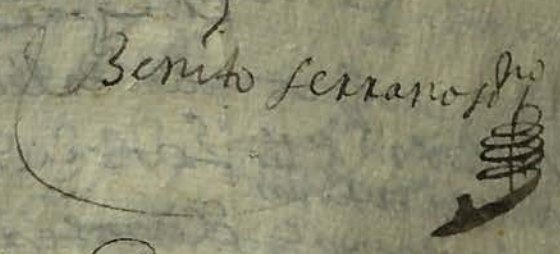 Benito serrano sno